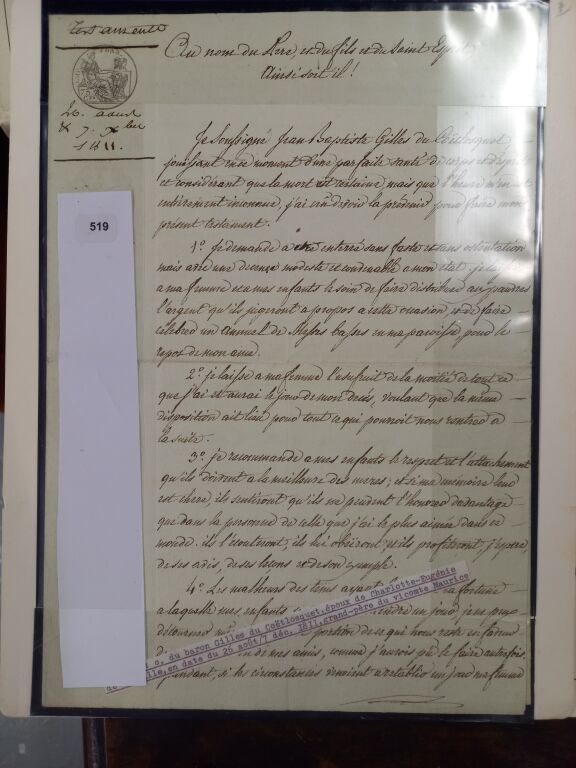 Testament
26. aout
& 7. Xbre
1811.
519
Au nom du Pere, et du fils et du Saint Esprit
Ainsi soit il !
Je Soussigné Jean Baptiste Gilles du Coëtlosquet
jouissant en ce moment d'une parfaite santé de corps et d'esprit
et considérant que la mort est certaine, mais que l'heure m'en est
entièrement inconnue, j'ai cru devoir la prévenir pour faire mon
présent testament.
1° Je demande a être enterré sans faste et sans ostentation
mais avec une décence modeste et convenable a mon état. je laisse
a ma femme et a mes enfants le soin de faire distribuer aux pauvres
l'argent qu'ils jugeront a propos a cette occasion et de faire
célébrer un Annuel de Messes basses en ma paroisse pour le
repos de mon ame.
2° je laisse a ma femme l'usufruit de la moitié de tout ce
que j'ai et aurai le jour de mon décès, voulant que la même
disposition ait lieu pour tout ce qui pourroit nous rentrer a
la suite.
3° je recommande a mes enfants le respect et l'attachement
qu'ils doivent a la meilleure des meres; et si ma mémoire leur
est chere, ils sentiront qu'ils ne peuvent l'honorer davantage
que dans la personne de celle que j'ai le plus aimée dans ce
monde. ils l'écouteront, ils lui obéiront et ils profiteront, j'espere,
de ses avis, de ses leçons et de son exemple.
4° Les malheurs des tems ayant fortune
a laquelle mes enfants un jour, je ne
portion de ce qui nous reste en faveur
de mes amis, comme j'aurois pu le faire autrefois.
Cependant, si les circonstances venoient a rétablir un jour ma fortune
du baron Gilles du Coëtlosquet, époux de Charlotte-Eugénie
en date du 26 août/7 déc. 1811, grand-père du vicomte Maurice